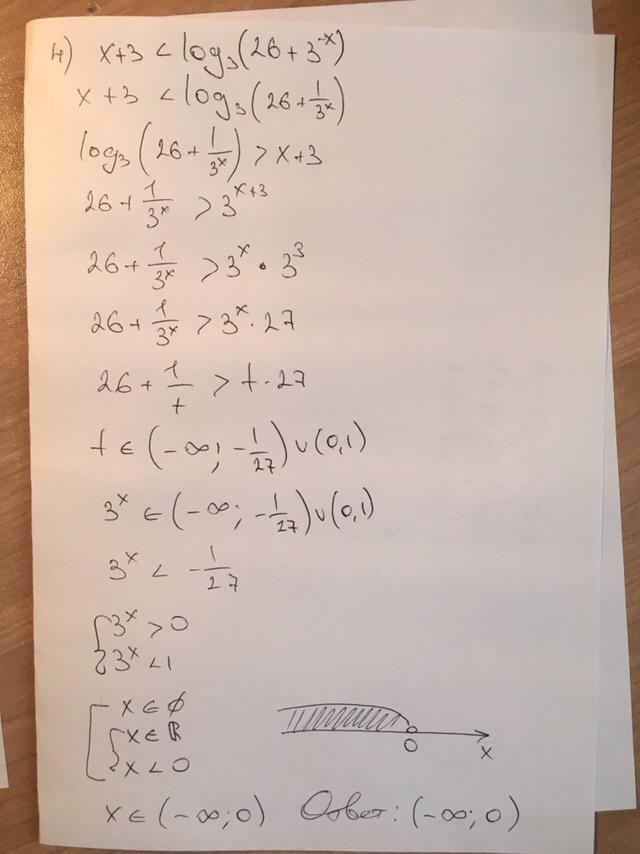 4) x+3 < log₃(26+3⁻ˣ)
x+3 < log₃(26+1/3ˣ)
log₃(26+1/3ˣ) > x+3
26+1/3ˣ > 3ˣ⁺³
26+1/3ˣ > 3ˣ • 3³
26+1/3ˣ > 3ˣ · 27
26+1/t > t · 27
t ∈ (-∞; -1/27) ∪ (0,1)
3ˣ ∈ (-∞; -1/27) ∪ (0,1)
3ˣ < -1/27
{ 3ˣ > 0
3ˣ < 1
[ x ∈ ∅
{ x ∈ ℝ
x < 0
0 x
x ∈ (-∞; 0) Ответ: (-∞; 0)